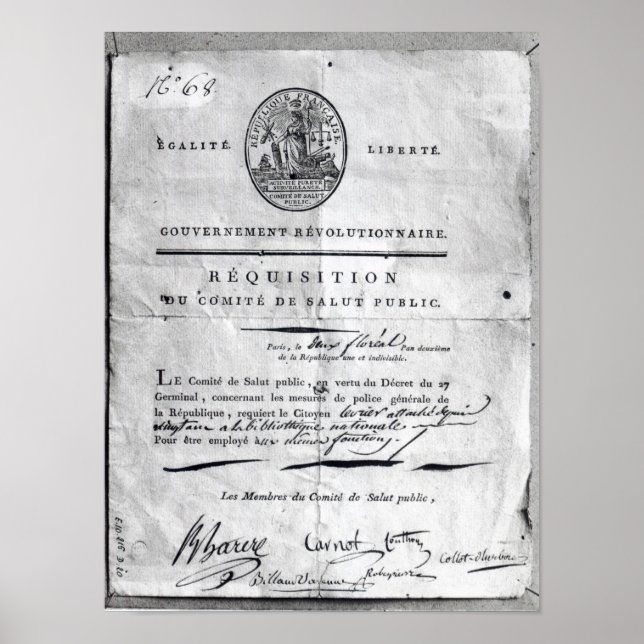 No. 68.
RÉPUBLIQUE FRANÇAISE.
ÉGALITÉ. LIBERTÉ.
ACTIVITÉ PURETÉ
SURVEILLANCE.
COMITÉ DE SALUT
PUBLIC.
GOUVERNEMENT RÉVOLUTIONNAIRE.
RÉQUISITION
DU COMITÉ DE SALUT PUBLIC.
Paris, le deux floréal l'an deuxième
de la République une et indivisible.
LE Comité de Salut public, en vertu du Décret du 27
Germinal, concernant les mesures de police générale de
la République, requiert le Citoyen attaché depuis
vingt ans a la bibliothèque nationale
Pour être employé aux mêmes fonctions.
Les Membres du Comité de Salut public,
B Barere Carnot Couthon Collot-d'herbois
Billaud Varenne Robespierre